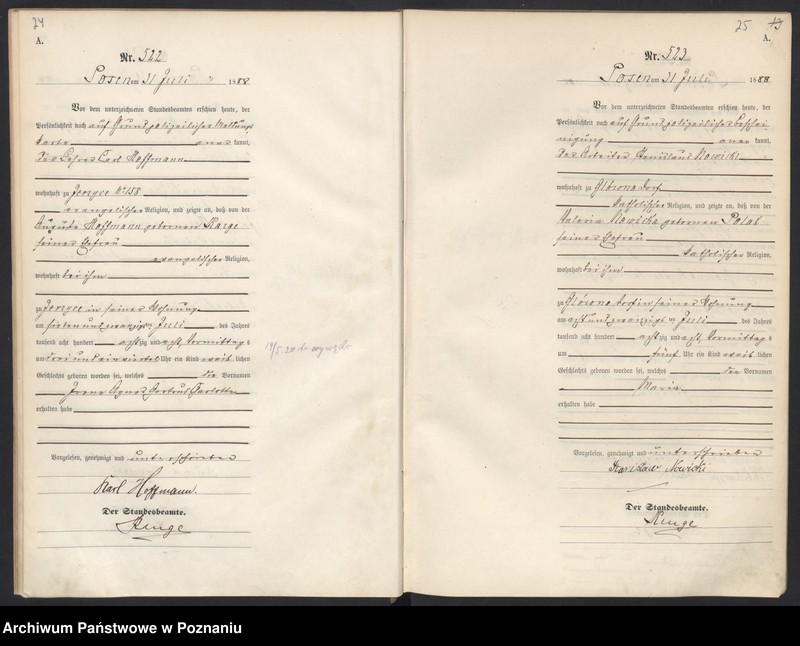 24
A.
Nr. 522
Posen am 31 Juli 1888
Vor dem unterzeichneten Standesbeamten erschien heute, der
Persönlichkeit nach auf Grund polizeilicher Meldungs
karte kannt,
Carl Hoffmann
wohnhaft zu Jerzyce No 158
evangelischer Religion, und zeigte an, daß von der
Auguste Hoffmann geborenen Karge
seiner Ehefrau
evangelischer Religion,
wohnhaft bei ihm
zu Jerzyce in seiner Wohnung
am sieben und zwanzigsten Juli des Jahres
tausend acht hundert achtzig und acht, Vormittags
um drei und ein viertel Uhr ein Kind weiblichen
Geschlechts geboren worden sei, welches die Vornamen
Agnes Gertrud Charlotte
erhalten habe
Vorgelesen, genehmigt und unterschrieben
Karl Hoffmann.
Der Standesbeamte.
25
A.
Nr. 523
Posen am 31 Juli 1888
Vor dem unterzeichneten Standesbeamten erschien heute, der
Persönlichkeit nach auf Grund polizeilicher Beschei-
nigung kannt,
der Arbeiter Stanislaus Nowicki
wohnhaft zu Glówno Dorf
katholischer Religion, und zeigte an, daß von der
Valeria Nowicka geborenen Polak
seiner Ehefrau
katholischer Religion,
wohnhaft bei ihm
zu Glówno Dorf in seiner Wohnung
am acht und zwanzigsten Juli des Jahres
tausend acht hundert achtzig und acht, Vormittags
um fünf Uhr ein Kind weiblichen
Geschlechts geboren worden sei, welches die Vornamen
Maria
erhalten habe
Vorgelesen, genehmigt und unterschrieben
Stanisław Nowicki
Der Standesbeamte.
Archiwum Państwowe w Poznaniu